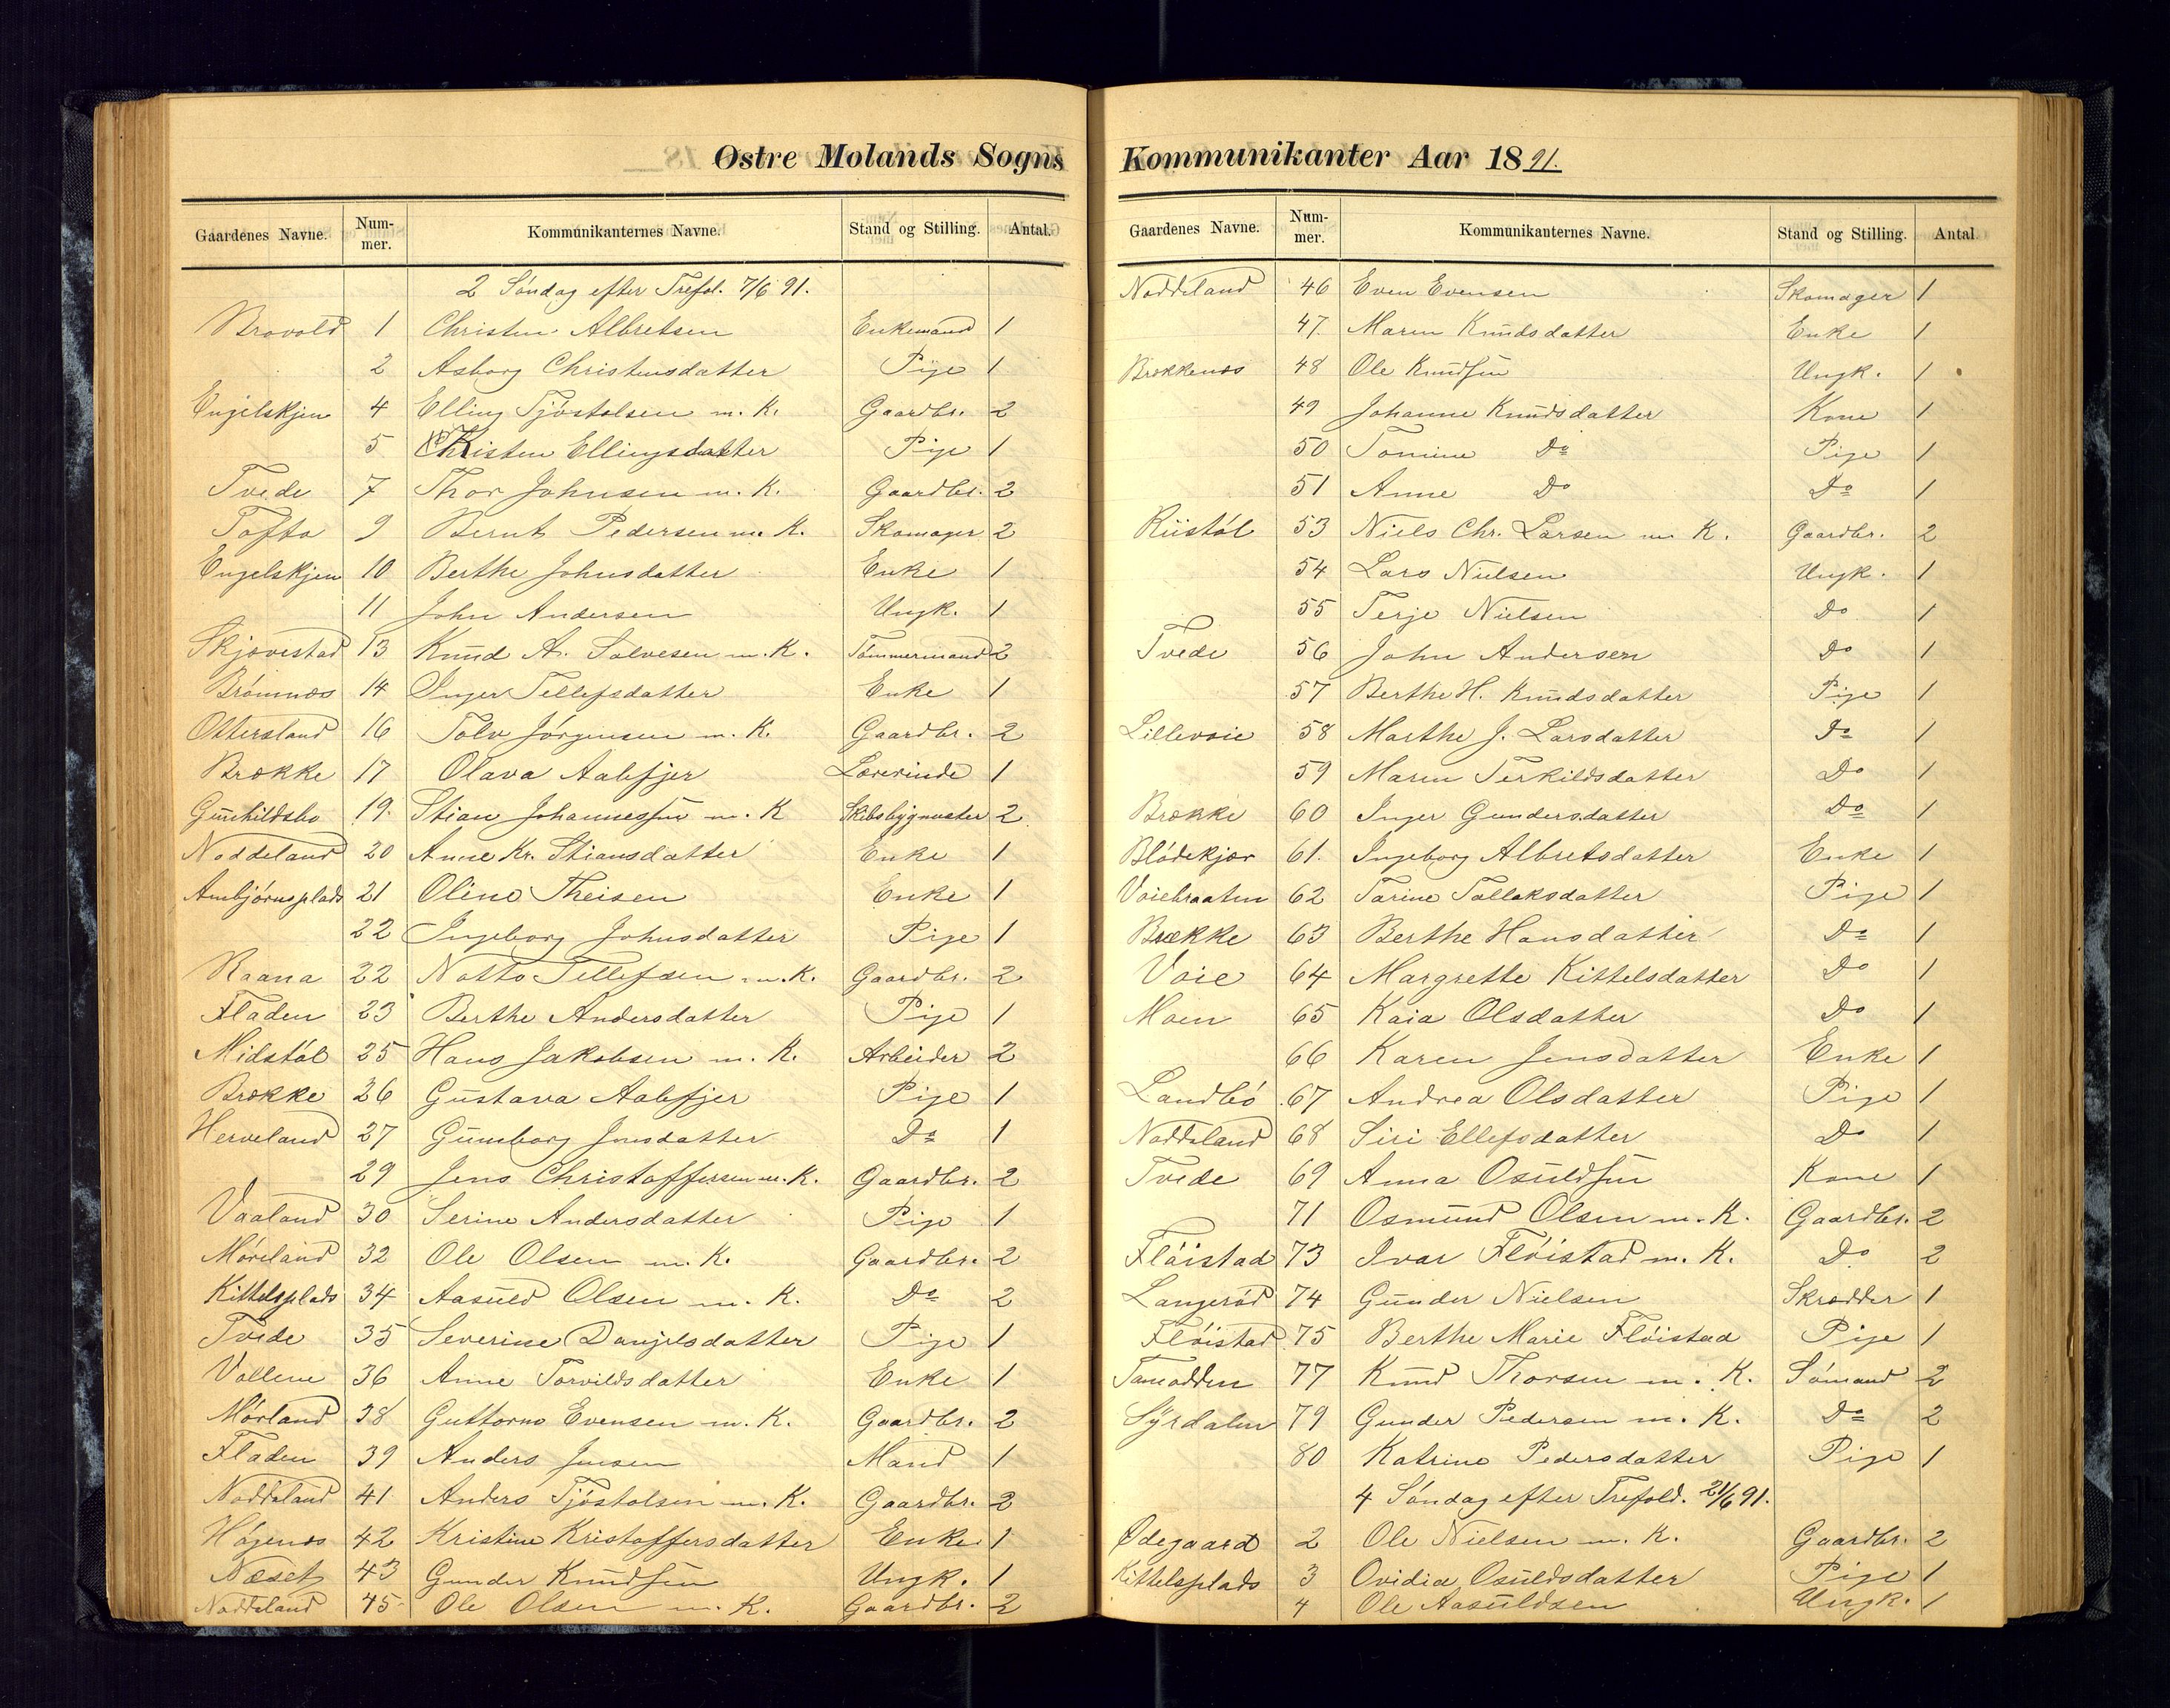 Østre Molands Sogns
Gaardenes Navne. Num-mer. Kommunikanternes Navne. Stand og Stilling. Antal.
2 Søndag efter Trefol. 7/6 91.
Brovold 1 Christen Albretsen Enkemand 1
2 Asborg Christensdatter Pige 1
Engelskjen 4 Elling Tjøstolsen m. K. Gaardbr. 2
5 Kristen Ellingsdatter Pige 1
Tvede 7 Thor Johnsen m. K. Gaardbr. 2
Tofta 9 Bernt Pedersen m. K. Skomager 2
Engelskjen 10 Berthe Johnsdatter Enke 1
11 John Andersen Ungk. 1
Skjævestad 13 Knud A. Salvesen m. K. Tømmermand 2
Brømnæs 14 Inger Tellefsdatter Enke 1
Ottersland 16 Tolv Jørgensen m. K. Gaardbr. 2
Brække 17 Olava Aalefjer Lærerinde 1
Gunhildsbo 19. Stian Johannessen m. K Skibsbygmester 2
Noddeland 20 Anne Kr. Stiansdatter Enke 1
Ambjørnsplads 21 Oline Theisen Enke 1
22 Ingeborg Johnsdatter Pige 1
Raana 22 Notto Tellefsen m. K. Gaardbr. 2
Fladen 23 Berthe Andersdatter Pige 1
Midstøl 25 Hans Jakobsen m. K. Arbeider 2
Brække 26 Gustava Aalefjer Pige 1
Herveland 27 Gunborg Jensdatter Do 1
29 Jens Christoffersen m. K. Gaardbr. 2
Vaaland 30 Serine Andersdatter Pige 1
Møreland 32 Ole Olsen m. K. Gaardbr. 2
Kittelsplads 34 Aasuld Olsen m. K. Do 2
Tvede 35 Severine Danjelsdatter Pige 1
Vollene 36 Anne Torvildsdatter Enke 1
Mørland 38 Guttorm Evensen m. K. Gaardbr. 2
Fladen 39 Anders Jensen Mand 1
Noddeland 41 Anders Tjøstolsen m. K. Gaardbr. 2
Høgenæs 42 Kristine Kristoffersdatter Enke 1
Næset 43 Gunder Knudsen Ungk. 1
Noddeland 45 Ole Olsen m. K. Gaardbr. 2
Kommunikanter Aar 1891.
Gaardenes Navne. Num-mer. Kommunikanternes Navne. Stand og Stilling. Antal.
Noddeland 46 Even Evensen Skomager 1
47 Maren Knudsdatter Enke 1
Brækkenæs 48 Ole Knudsen Ungk. 1
49 Johanne Knudsdatter Kone 1
50 Tomine Do Pige 1
51 Anne Do Do 1
Riistøl 53 Niels Chr. Larsen m. K. Gaardbr. 2
54 Lars Nielsen Ungk. 1
55 Terje Nielsen Do 1
Tvede 56 John Andersen Do 1
57 Berthe H. Knudsdatter Pige 1
Lillevoie 58 Marthe J. Larsdatter Do 1
59 Maren Terkildsdatter Do 1
Brække 60 Inger Gundersdatter Do 1
Blødekjær 61. Ingeborg Albretsdatter Enke 1
Voiebraaten 62 Tarine Tallaksdatter Pige 1
Brække 63 Berthe Hansdatter Do 1
Voie 64 Margrette Kittelsdatter Do 1
Moen 65 Kaia Olsdatter Do 1
66 Karen Jensdatter Enke 1
Landbø 67 Andrea Olsdatter Pige 1
Noddeland 68 Siri Ellefsdatter Do 1
Tvede 69 Anna Osuldsen Kone 1
71 Osmund Olsen m. K. Gaardbr. 2
Fløistad 73 Ivar Fløistad m. K. Do 2
Langerød 74 Gunder Nielsen Skrædder 1
Fløistad 75 Berthe Marie Fløistad Pige 1
77 Knud Thorsen m. K. Sømand 2
Syrdalen 79 Gunder Pedersen m. K. Do 2
80 Katrine Pedersdatter Pige 1
4 Søndag efter Trefold. 21/6 91.
Ødegaard 2 Ole Nielsen m. K. Gaardbr. 2
Kittelsplads 3 Ovidia Osuldsdatter Pige 1
4 Ole Aasuldsen Ungk. 1